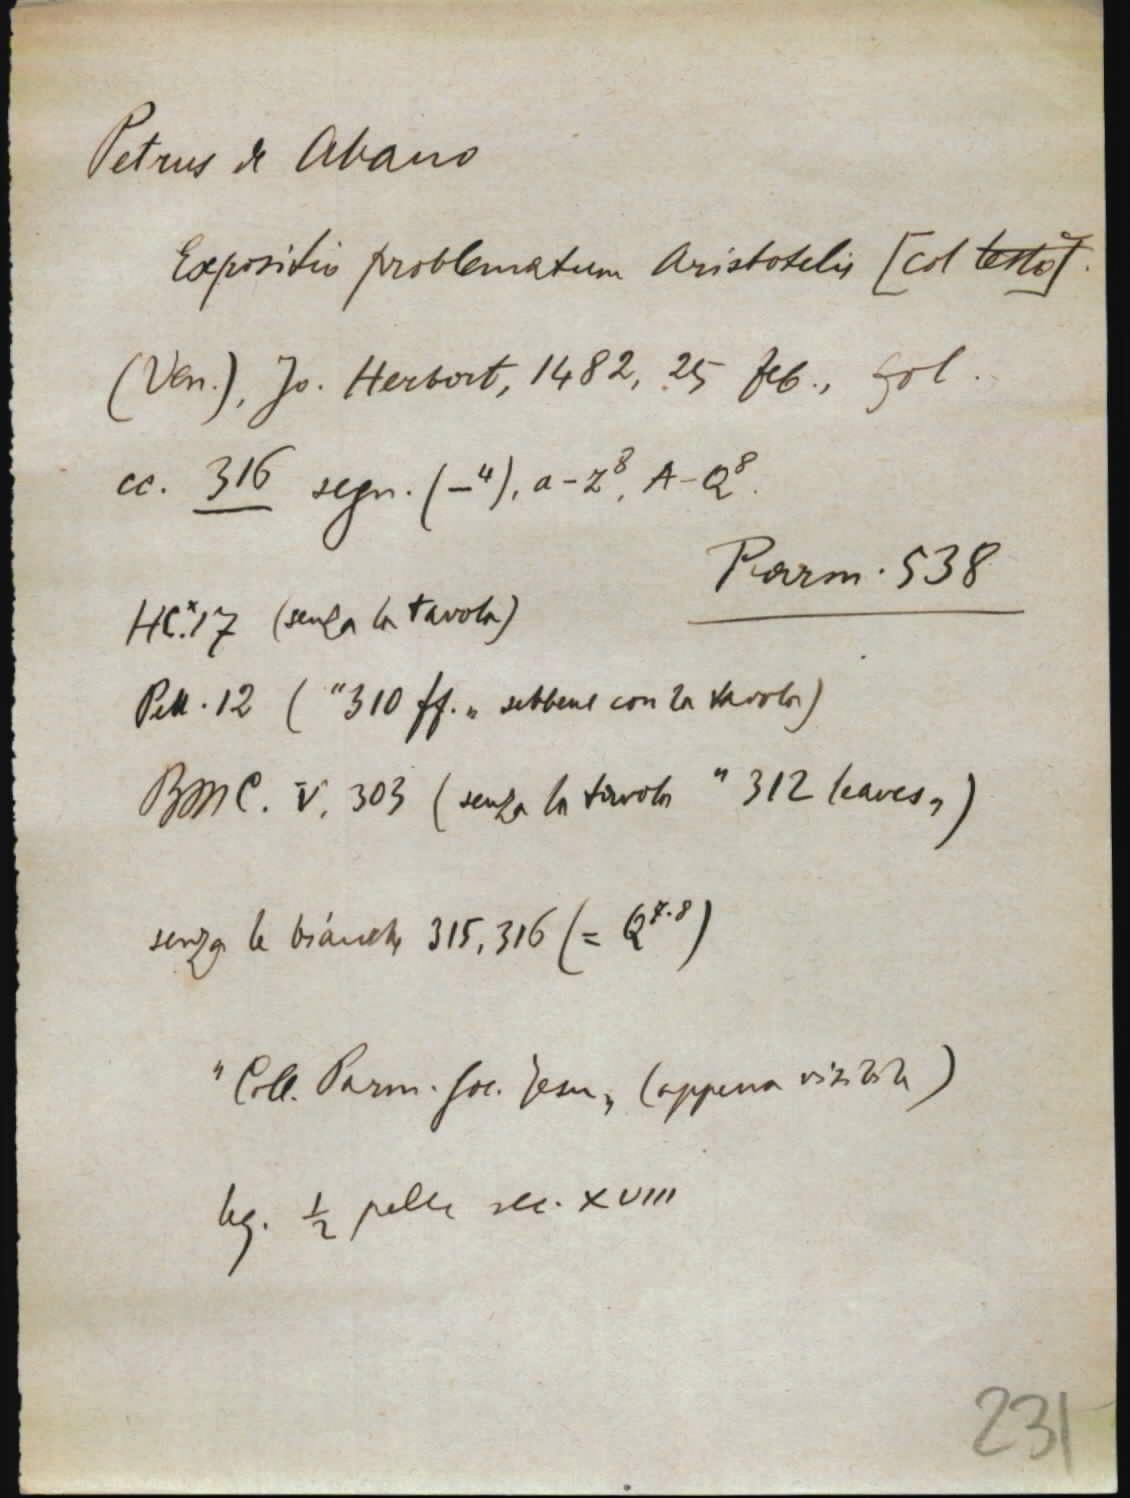 Petrus de Abano
Expositio problematum Aristotelis [col testo].
(Ven.), Jo. Herbort, 1482, 25 feb., fol.
cc. 316 segn. (–⁴), a–z⁸, A–Q⁸.
Parm. 538
HC.ˣ17 (senza la tavola)
Pell. 12 ( "310 ff." sebbene con la tavola)
BMC. V, 303 (senza la tavola "312 leaves")
senza le bianche 315, 316 (= Q⁷·⁸)
"Coll. Parm. Soc. Jesu" (appena visibile)
leg. ½ pelle sec. XVIII
231